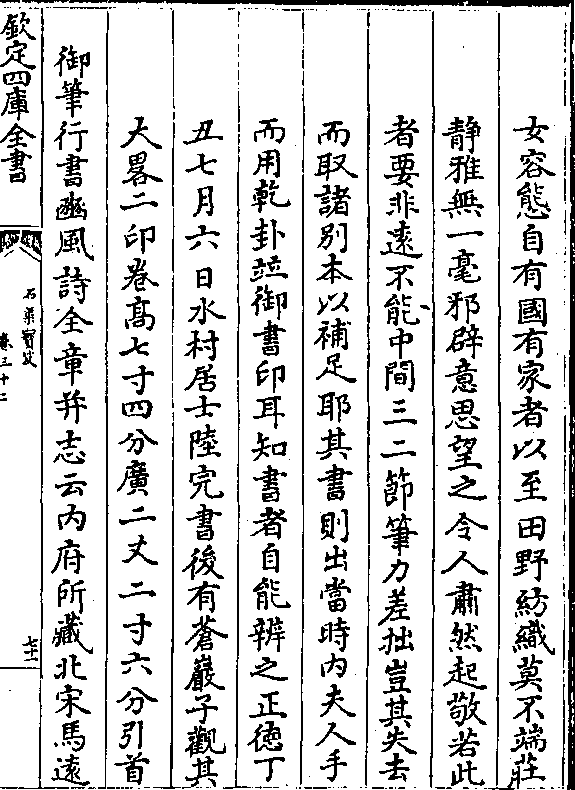 女容態自有國有家者以至田野紡織莫不端莊
静雅無一毫邪辟意思望之令人肅然起敬若此
者要非遠不能中間三二節筆力差拙豈其失去
而取諸别本以補足耶其書則出當時内夫人手
而用乾卦竝御書印耳知書者自能辨之正徳丁
丑七月六日水村居士陸完書後有蒼巖子觀其
大畧二印卷髙七寸四分廣二丈二寸六分引首
御筆行書豳風詩全章幷志云内府所藏北宋馬逺
欽定四庫全書
石渠寳笈
卷三十二
七十一